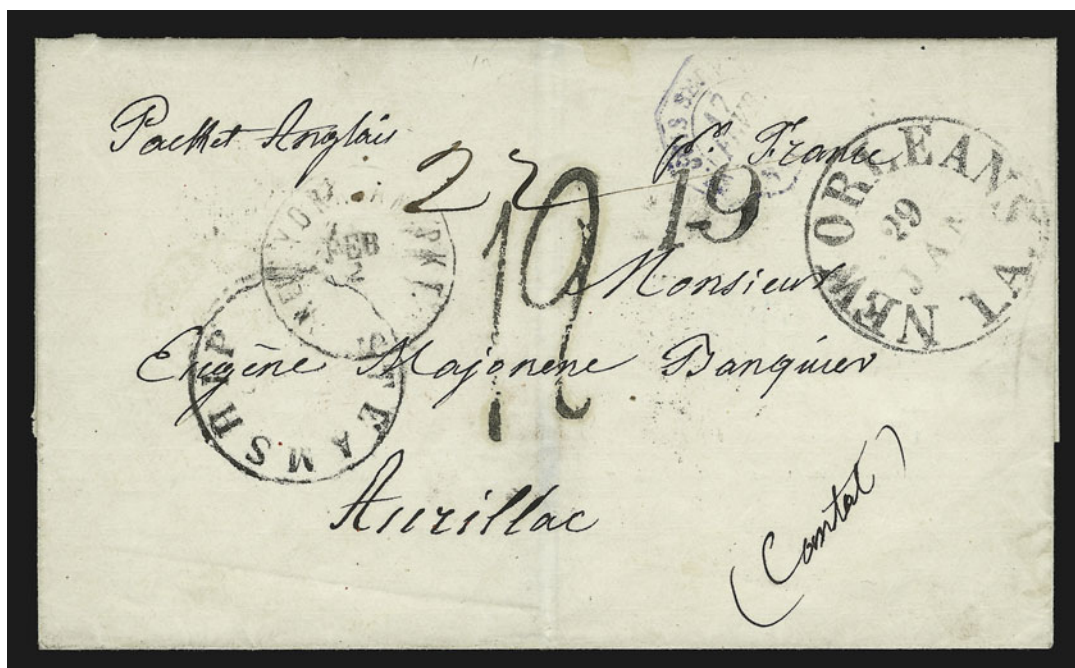 Packet Anglais
pr. France
22
19
NEW ORLEANS LA.
29
JAN
NEW YORK AM. PKT.
FEB
2
STEAMSHIP
Monsieur
Eugène Majonene Banquier
Aurillac
(Cantal)